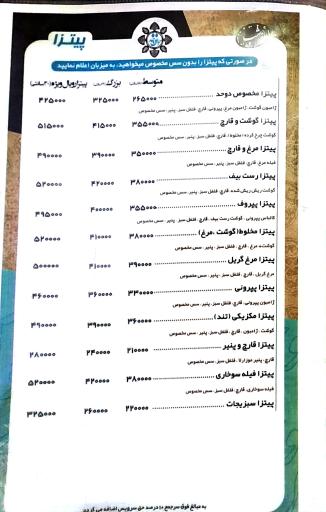 پیتزا
در صورتی که پیتزا را بدون سس مخصوص میخواهید، به میزبان اعلام نمایید
متوسط بزرگ پیتزا رویال ویژه
پیتزا مخصوص دوحد ۲۶۵۰۰۰ ۳۲۵۰۰۰ ۴۲۵۰۰۰
ژامبون گوشت، ژامبون مرغ، پپرونی، قارچ، فلفل سبز، پنیر، سس مخصوص
پیتزا گوشت و قارچ ۳۵۵۰۰۰ ۴۱۵۰۰۰ ۵۱۵۰۰۰
گوشت چرخ کرده، قارچ، فلفل سبز، پنیر، سس مخصوص
پیتزا مرغ و قارچ ۳۵۰۰۰۰ ۳۹۰۰۰۰ ۴۹۰۰۰۰
فیله مرغ، قارچ، فلفل سبز، پنیر، سس مخصوص
پیتزا رست بیف ۳۸۰۰۰۰ ۴۲۰۰۰۰ ۵۲۰۰۰۰
گوشت ریش ریش شده، قارچ، فلفل سبز، پنیر، سس مخصوص
پیتزا پپروف ۳۵۵۰۰۰ ۴۰۰۰۰۰ ۴۹۵۰۰۰
کالباس پپرونی، گوشت رست بیف، قارچ، فلفل سبز، پنیر، سس مخصوص
پیتزا مخلوط(گوشت،مرغ) ۳۸۰۰۰۰ ۴۱۰۰۰۰ ۵۲۰۰۰۰
گوشت، مرغ، قارچ، فلفل سبز، پنیر، سس مخصوص
پیتزا مرغ گریل ۳۹۰۰۰۰ ۴۱۰۰۰۰ ۵۰۰۰۰۰
مرغ گریل، قارچ، فلفل سبز، پنیر، سس مخصوص
پیتزا پپرونی ۳۳۰۰۰۰ ۳۶۰۰۰۰ ۴۶۰۰۰۰
ژامبون پپرونی، قارچ، فلفل سبز، پنیر، سس مخصوص
پیتزا مکزیکی(تند) ۳۶۰۰۰۰ ۳۹۰۰۰۰ ۴۹۰۰۰۰
گوشت، ژامبون، قارچ، فلفل سبز، پنیر، سس مخصوص
پیتزا قارچ و پنیر ۲۱۰۰۰۰ ۲۴۰۰۰۰ ۲۸۰۰۰۰
قارچ، پنیر موزارلا، فلفل سبز، سس مخصوص
پیتزا فیله سوخاری ۳۸۰۰۰۰ ۴۲۰۰۰۰ ۵۲۰۰۰۰
فیله سوخاری، قارچ، فلفل سبز، سس مخصوص
پیتزا سبزیجات ۲۲۰۰۰۰ ۲۶۰۰۰۰ ۳۲۵۰۰۰
به مبالغ فوق سرجمع ۱۰ درصد حق سرویس اضافه می گردد